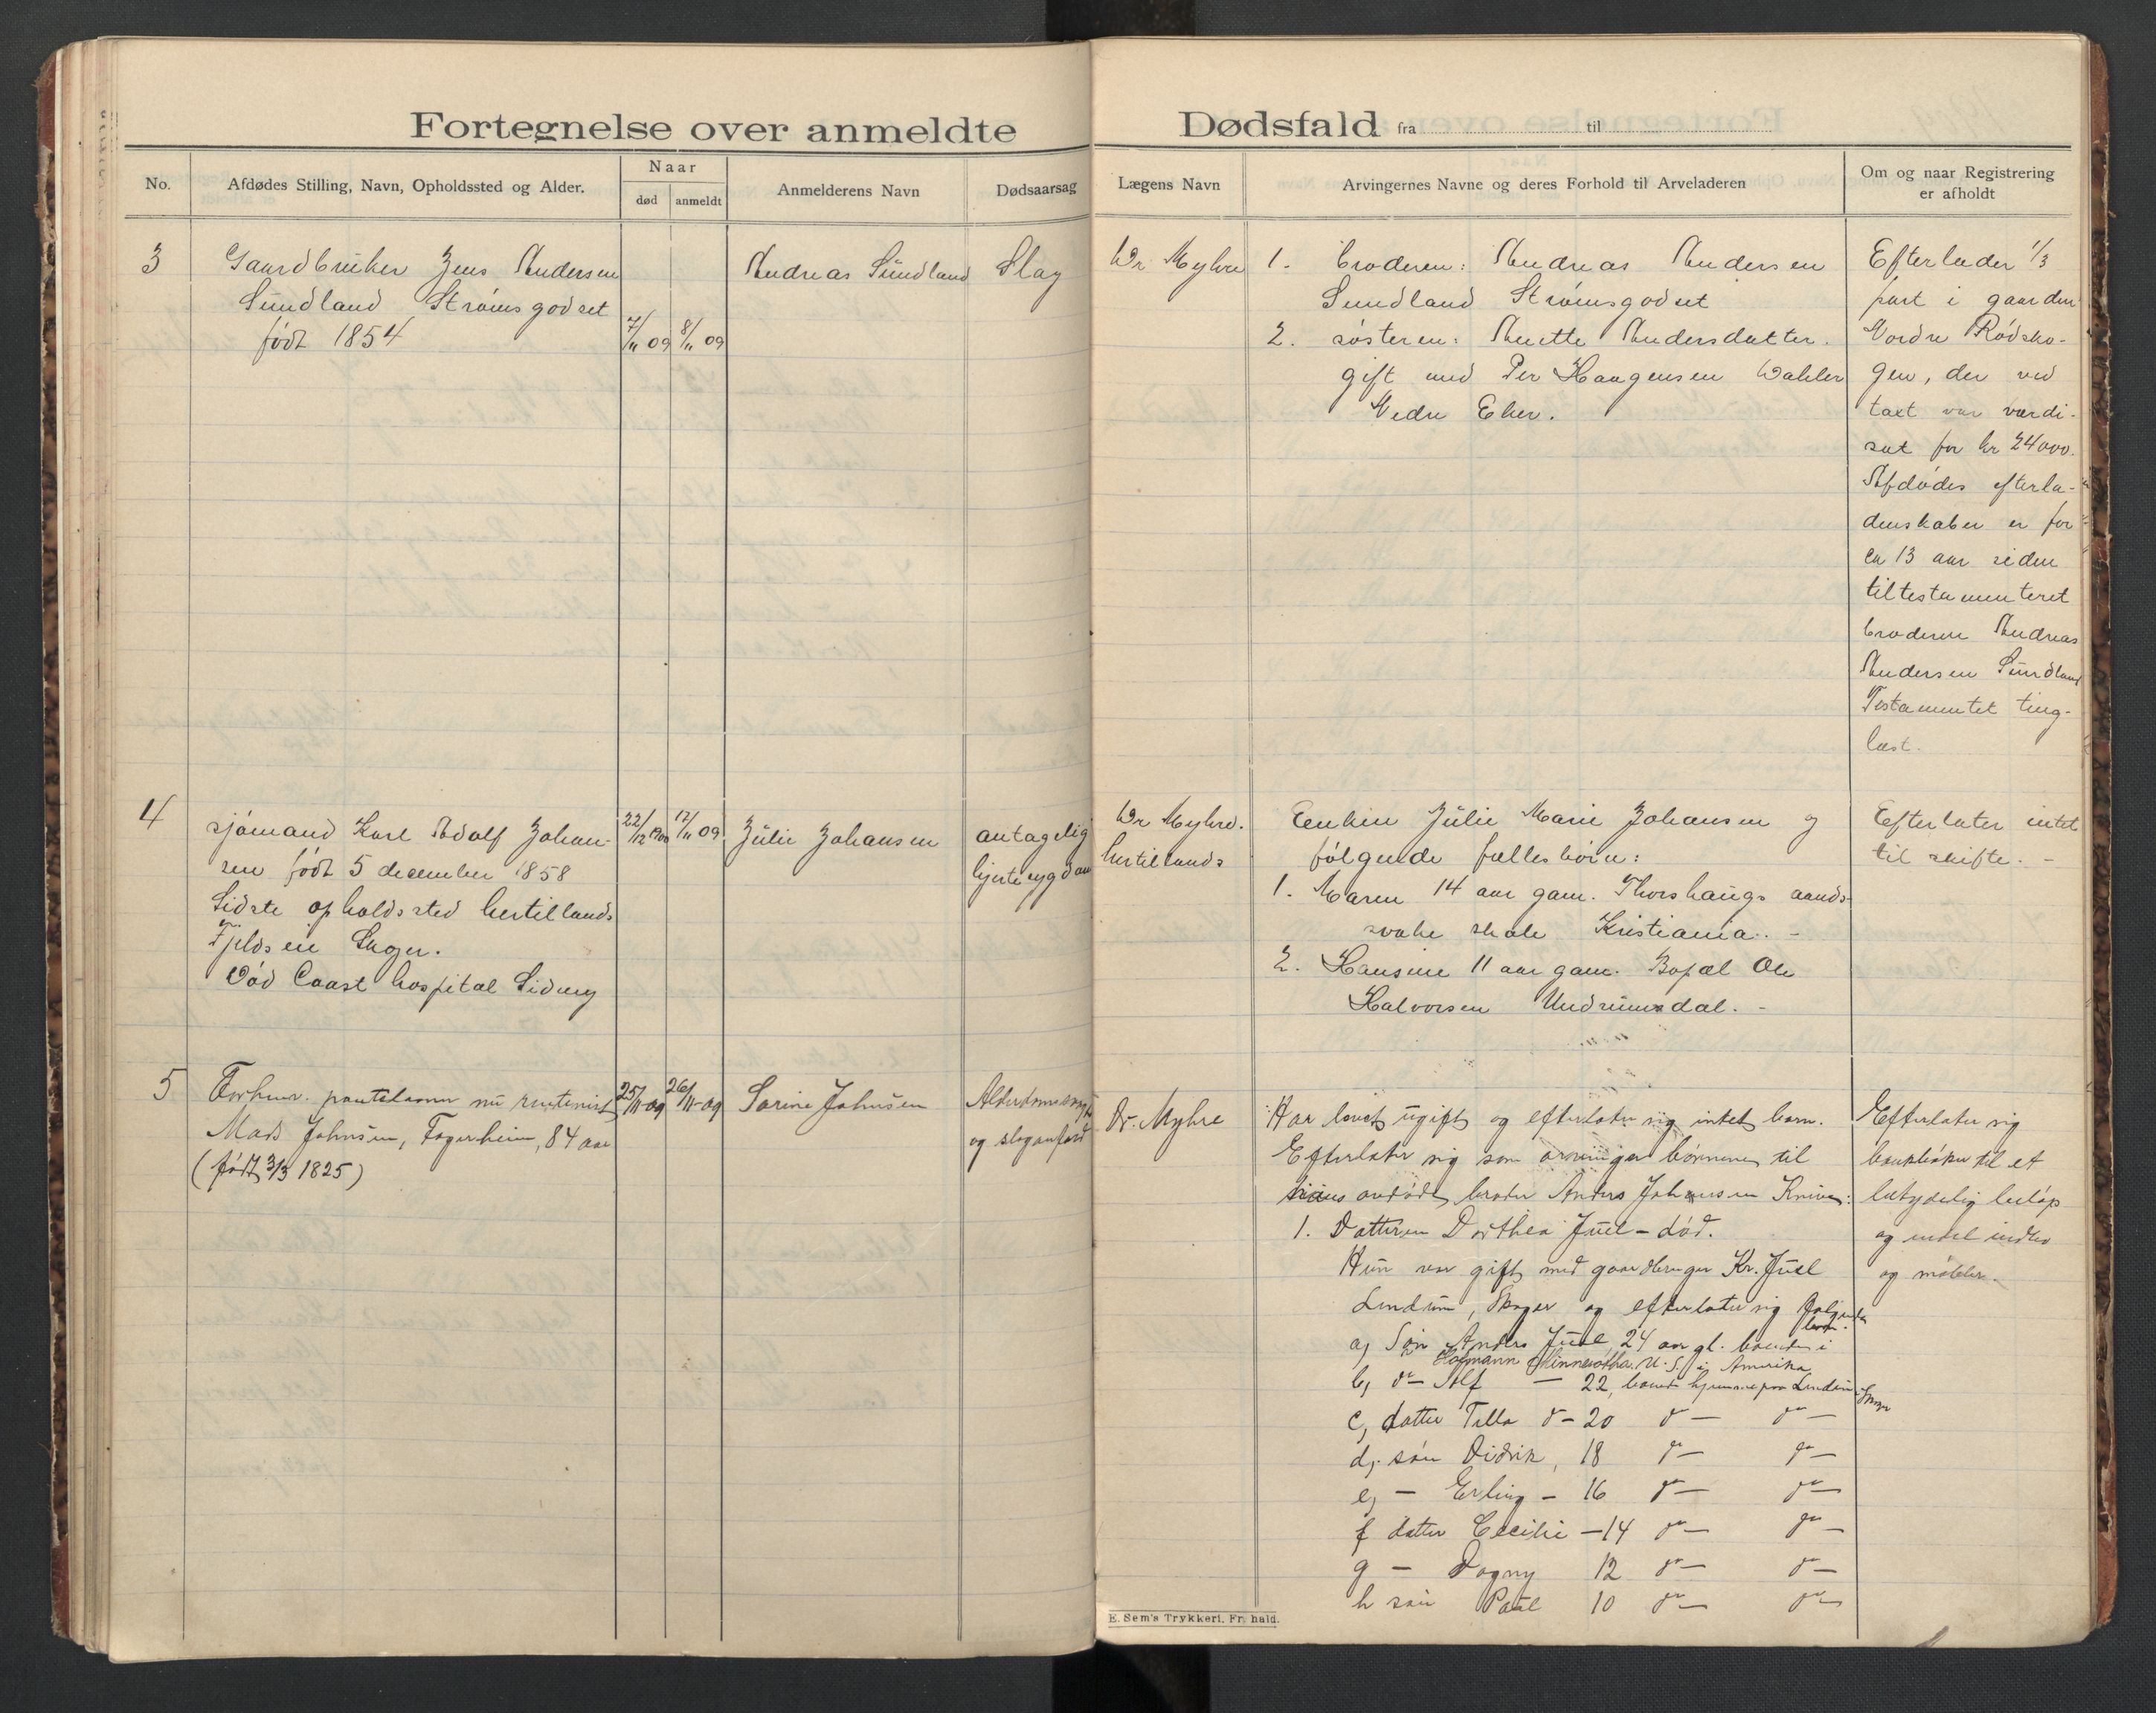 Fortegnelse over anmeldte Dødsfald fra til
No.
Afdødes Stilling, Navn, Opholdssted og Alder.
Naar
død
anmeldt
Anmelderens Navn
Dødsaarsag
Lægens Navn
Arvingernes Navne og deres Forhold til Arveladeren
Om og naar Registrering
er afholdt
3
Gaardbruker Jens Andersen
Sundland Strømsgodset
født 1854
7/11 09
8/11 09
Andreas Sundland
Slag
Dr Myhre
1. broderen: Andreas Andersen
Sundland Strømsgodset
2. søsteren: Anette Andersdatter.
gift med Per Haagensen Dahler
Nedre Eker.
Efterlader 1/3
part i gaarden
Nordre Rødsko-
gen, der ved
taxt var værdi-
sat for kr 24000.
Afdødes efterla-
denskaber er for
ca 13 aar siden
tiltestamenteret
broderen Andreas
Andersen Sundland
Testamentet ting-
læst.
4
sjømand Karl Adolf Johan-
sen født 5 december 1858
Sidste opholdssted hertillands
Skoger.
Død Coast hospital Sidney
22/12 1900
17/11 09
Julie Johansen
antagelig
hjertesygdom
Dr Myhre.
hertillands
Enken Julie Marie Johansen og
følgende fællesbørn:
1. Maren 14 aar gam. Thorshaugs aands-
svake skole Kristiania. -
2. Hansine 11 aar gam. Bopæl Ole
Halvorsen Undrumsdal. -
Efterlater intet
til skifte. -
5
Forhenv. pantelaaner nu rentenist
Mads Johnsen, Fagerheim, 84 aar
(født 3/3 1825)
25/11-09
26/11-09
Sorine Johnsen
Alderdomssvaghet
og slaganfald
Dr. Myhre
Har levet ugift og efterlater sig intet barn.
Efterlater sig som arvinger børnene til
sin avdøde broder Anders Johansen Knive:
1. Datteren Dorthea Juel - død.
Hun var gift med gaardbruger Kr. Juel
Lindum, Skoger og efterlater sig følgende
børn:
a, Søn Anders Juel 24 aar gl. boende i
Hofmann Minnesotha. U. S. i Amerika
b, do- Alf - 22, boende hjemme paa Lindum Skoger
c, datter Tilla do- 20 do- do-
d, søn Didrik, 18 do- do-
e, - Erling - 16 do- do-
f datter Cecilie - 14 do- do-
g - Dagny 12 do- do-
h søn Paul 10 do- do-
Efterlater sig
bankbøker til et
betydelig beløp
og endel indbo
og møbler.
E. Sem's Trykkeri, Fr.hald.